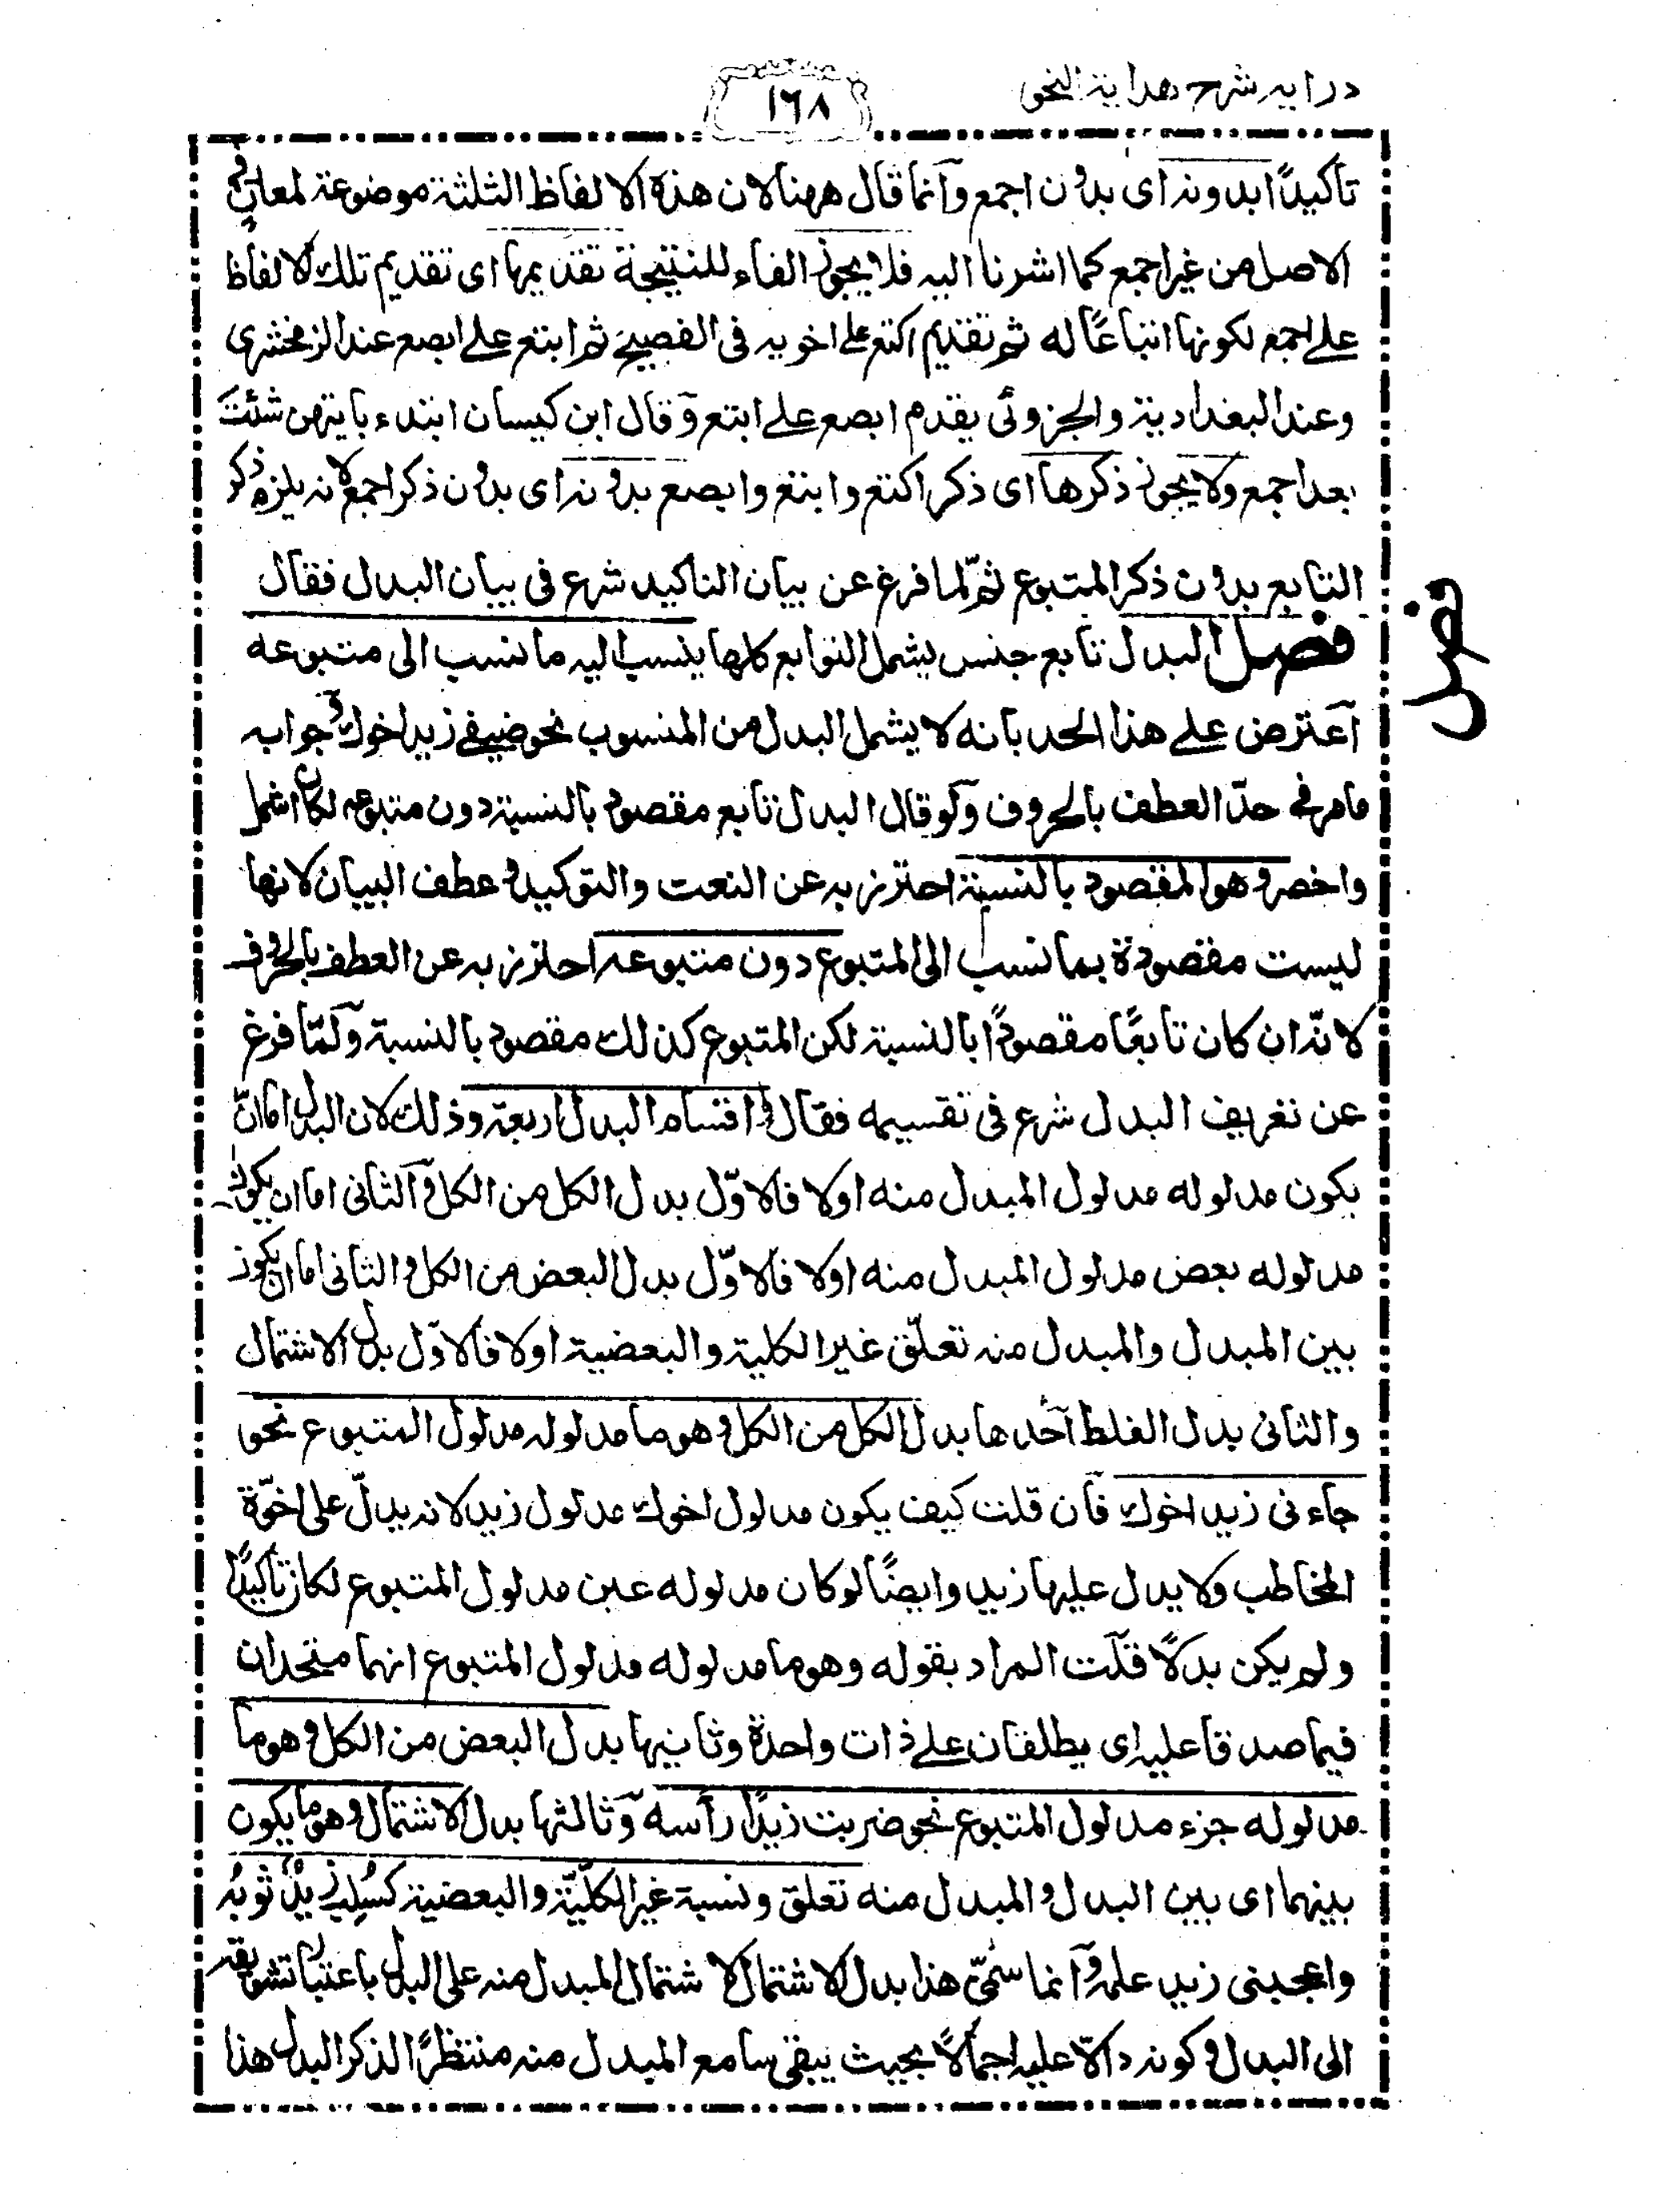 درايه شرح هداية النحو
١٦٨
تأكيدًا ابدونه اى بدون اجمع وآنما قال ههنا لان هذه الالفاظ الثلثة موضوعة لمعان فى
الاصل من غير اجمع كما اشرنا اليه فلا يجوز الفاء للنتيجة تقديمها اى تقديم تلك الالفاظ
على اجمع لكونها اتباعًا له ثم تقديم اكتع على اخويه فى الفصيح ثم ابتع على ابصع عند الزمخشرى
وعند البغدادية والجزولى يقدم ابصع على ابتع وقال ابن كيسان ابتدء بايتهن شئت
بعد اجمع ولا يجوز ذكرها اى ذكر اكتع وابتع وابصع بدونه اى بدون ذكر اجمع لانه يلزم ذكر
التابع بدون ذكر المتبوع ثمّ لما فرغ عن بيان التاكيد شرع فى بيان البدل فقال
فصل البدل تابع جنس يشمل التوابع كلها ينسب اليه ما نسب الى متبوعه
فصل
آعترض على هذا الحد بانه لا يشمل البدل من المنسوب نحو ضيفى زيد اخوك وجوابه
ما مر فى حدّ العطف بالحروف ولو قال البدل تابع مقصود بالنسبة دون متبوعه لكان اشمل
واخصر وهو المقصود بالنسبة احترز به عن النعت والتوكيد وعطف البيان لانها
ليست مقصودة بما نسب الى المتبوع دون متبوعه احترز به عن العطف بالحروف
لانّه ان كان تابعًا مقصودًا بالنسبة لكن المتبوع كذلك مقصود بالنسبة ولمّا فرغ
عن تعريف البدل شرع فى تقسيمه فقال واقسام البدل اربعة وذلك لان البدل اما ان
يكون مدلوله مدلول المبدل منه اولا فالاوّل بدل الكل من الكل والثانى اما ان يكون
مدلوله بعض مدلول المبدل منه اولا فالاوّل بدل البعض من الكل والثانى اما ان يكون
بين المبدل والمبدل منه تعلّق غير الكلية والبعضية اولا فالاوّل بدل الاشتمال
والثانى بدل الغلط آحدها بدل الكل من الكل وهو ما مدلوله مدلول المتبوع نحو
جاءنى زيد اخوك فآن قلت كيف يكون مدلول اخوك مدلول زيد لانه يدلّ على اخوّة
المخاطب ولا يدل عليها زيد وايضًا لو كان مدلوله عين مدلول المتبوع لكان تأكيدًا
ولم يكن بدلًا قلت المراد بقوله وهو ما مدلوله مدلول المتبوع انهما متحدان
فيما صدقا عليه اى يطلقان على ذات واحدة وثانيها بدل البعض من الكل وهو ما
مدلوله جزء مدلول المتبوع نحو ضربت زيدًا رأسه وثالثها بدل الاشتمال وهو ما يكون
بينهما اى بين البدل والمبدل منه تعلق ونسبة غير الكليّة والبعضية كسُلِبَ زيدٌ ثوبُه
واعجبنى زيد علمه وآنما سُمّى هذا بدل الاشتمال لاشتمال المبدل منه على البدل باعتبار تشويقه
الى البدل وكونه دالّا عليه اجمالًا بحيث يبقى سامع المبدل منه منتظرًا لذكر البدل هذا